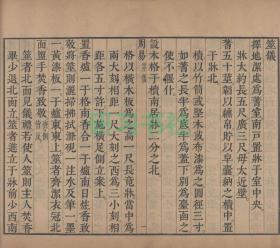 筮儀
擇地潔處為蓍室南戶置牀于室中央
牀大約長五尺廣三尺毋太近壁
蓍五十莖韜以纁帛貯以皁囊納之櫝中置
于牀北
櫝以竹筒或堅木或布漆為之圓徑三寸
如蓍之長半為底半為蓋下別為臺函之
使不偃仆
設木格于櫝南居牀二分之北
格以橫木板為之高一尺長竟牀當中為
兩大刻相距一尺大刻之西為三小刻相
距各五寸許下施橫足側立案上
置香爐一于格南香合一于爐南日炷香致
敬將筮則灑掃拂拭滌硯一注水及筆一墨
一黃漆板一于爐東東上筮者齊潔衣冠北
面盥手焚香致敬
筮者北面見儀禮若使人筮則主人焚香
畢少退北面立筮者進立于牀前少西南
周易